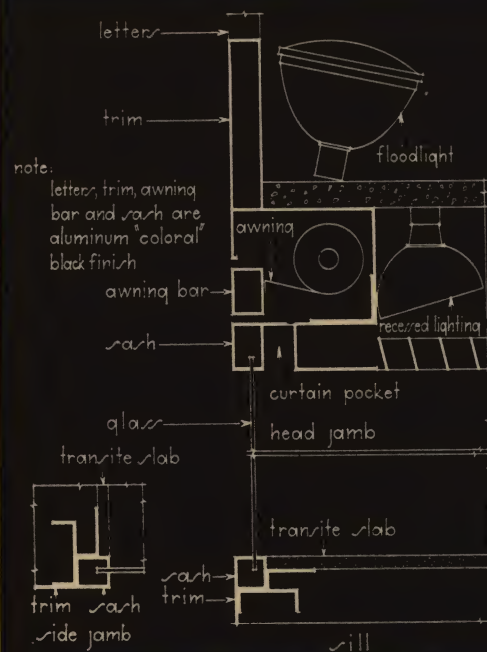 letters
trim
floodlight
note:
letters, trim, awning
bar and sash are
aluminum "coloral"
black finish
awning
awning bar
recessed lighting
sash
curtain pocket
glass
head jamb
transite slab
transite slab
sash
trim
trim sash
side jamb
sill